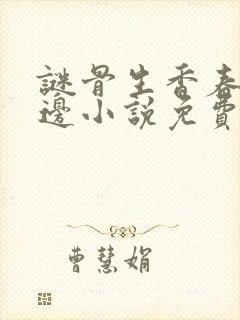 謎骨生香春
邊小說免費
曹慧娟